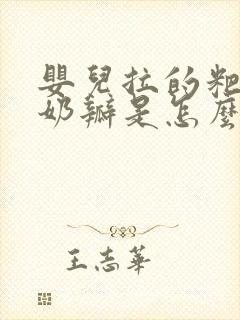 嬰兒拉的粑
奶瓣是怎麼
王志華